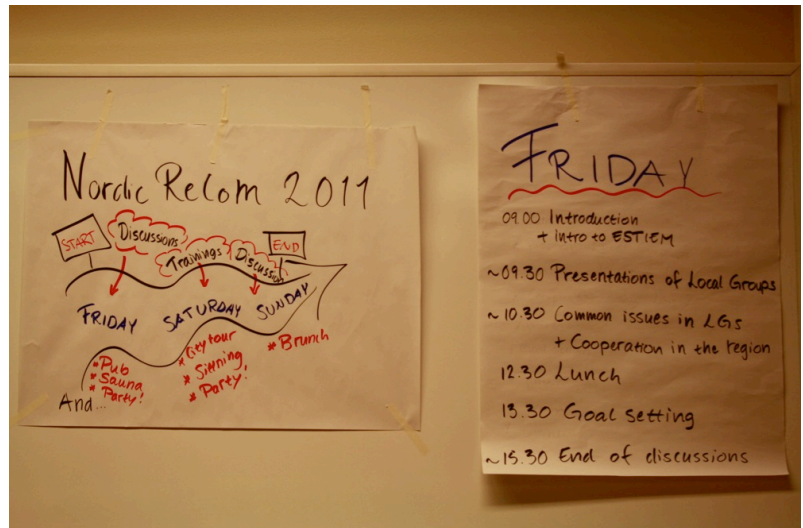 Nordic ReCom 2011
START
Discussions
Trainings
Discussions
END
FRIDAY
SATURDAY
SUNDAY
* Pub
* Sauna
* Party!
* City tour
* Sittning
* Party!
* Brunch
And...
FRIDAY
09.00 Introduction
+ intro to ESTIEM
~09.30 Presentations of Local Groups
~10.30 Common issues in LGs
+ Cooperation in the region
12.30 Lunch
13.30 Goal setting
~15.30 End of discussions